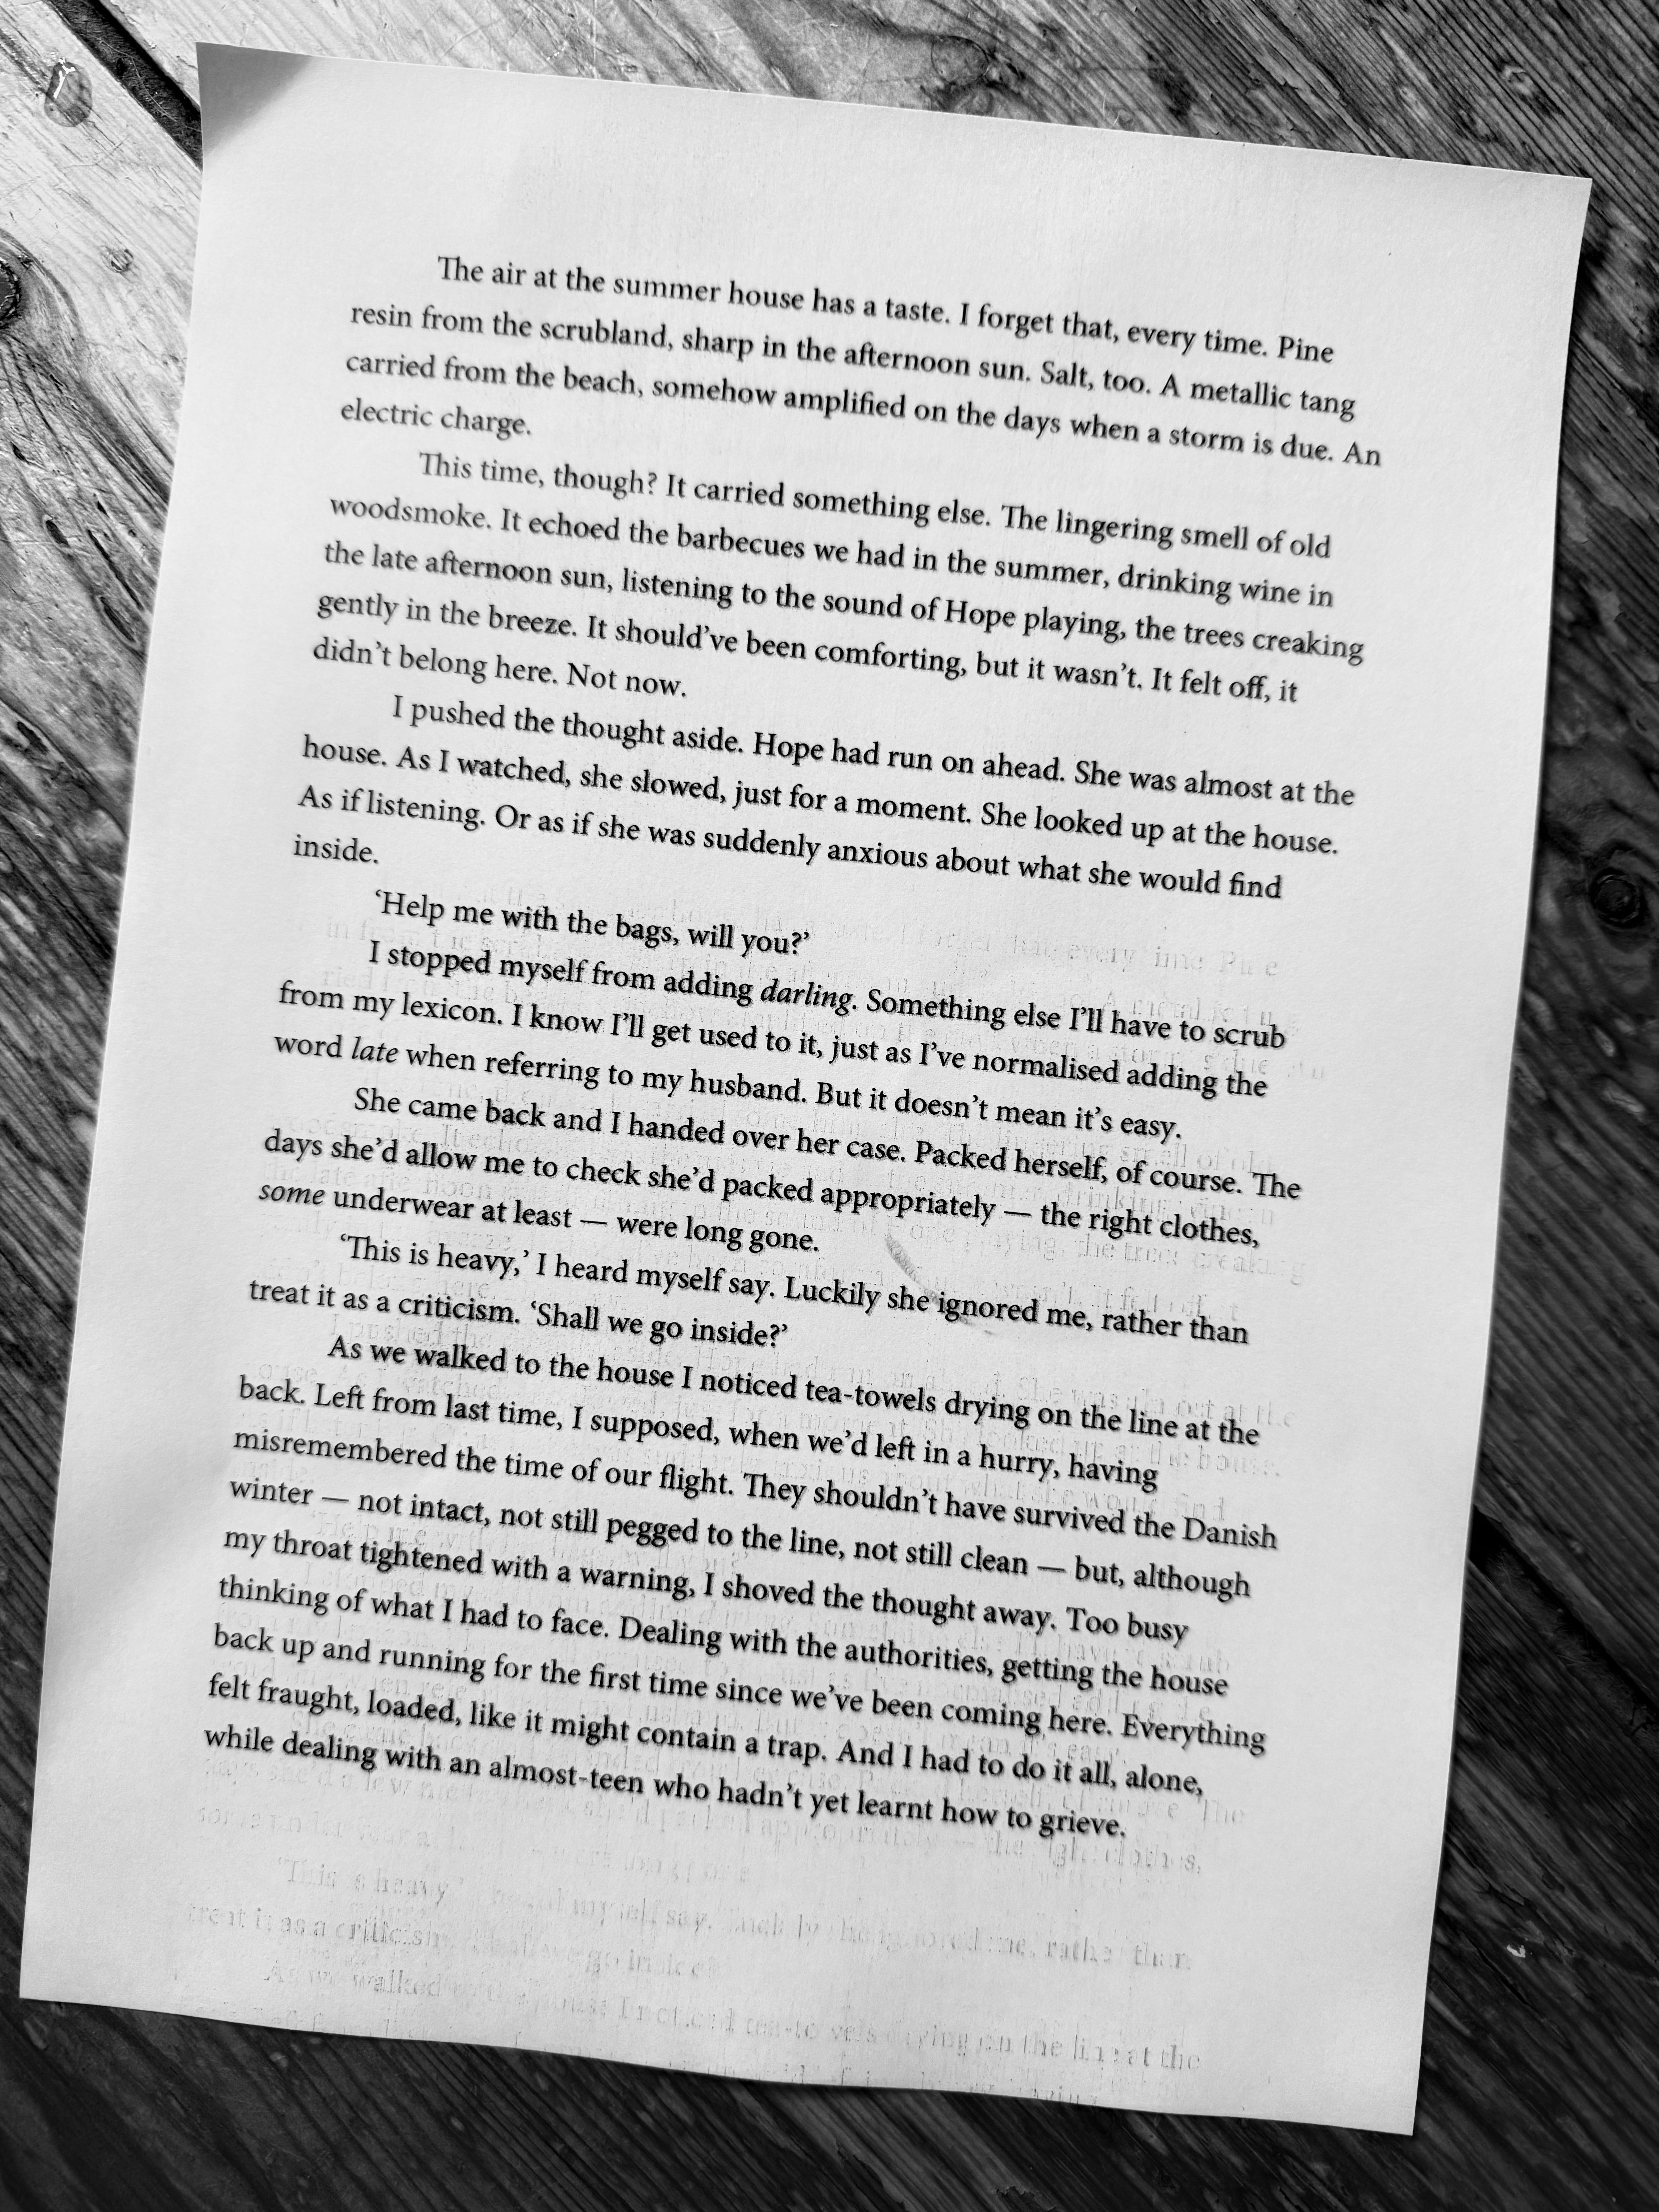 The air at the summer house has a taste. I forget that, every time. Pine
resin from the scrubland, sharp in the afternoon sun. Salt, too. A metallic tang
carried from the beach, somehow amplified on the days when a storm is due. An
electric charge.
This time, though? It carried something else. The lingering smell of old
woodsmoke. It echoed the barbecues we had in the summer, drinking wine in
the late afternoon sun, listening to the sound of Hope playing, the trees creaking
gently in the breeze. It should’ve been comforting, but it wasn’t. It felt off, it
didn’t belong here. Not now.
I pushed the thought aside. Hope had run on ahead. She was almost at the
house. As I watched, she slowed, just for a moment. She looked up at the house.
As if listening. Or as if she was suddenly anxious about what she would find
inside.
‘Help me with the bags, will you?’
I stopped myself from adding darling. Something else I’ll have to scrub
from my lexicon. I know I’ll get used to it, just as I’ve normalised adding the
word late when referring to my husband. But it doesn’t mean it’s easy.
She came back and I handed over her case. Packed herself, of course. The
days she’d allow me to check she’d packed appropriately — the right clothes,
some underwear at least — were long gone.
‘This is heavy,’ I heard myself say. Luckily she ignored me, rather than
treat it as a criticism. ‘Shall we go inside?’
As we walked to the house I noticed tea-towels drying on the line at the
back. Left from last time, I supposed, when we’d left in a hurry, having
misremembered the time of our flight. They shouldn’t have survived the Danish
winter — not intact, not still pegged to the line, not still clean — but, although
my throat tightened with a warning, I shoved the thought away. Too busy
thinking of what I had to face. Dealing with the authorities, getting the house
back up and running for the first time since we’ve been coming here. Everything
felt fraught, loaded, like it might contain a trap. And I had to do it all, alone,
while dealing with an almost-teen who hadn’t yet learnt how to grieve.